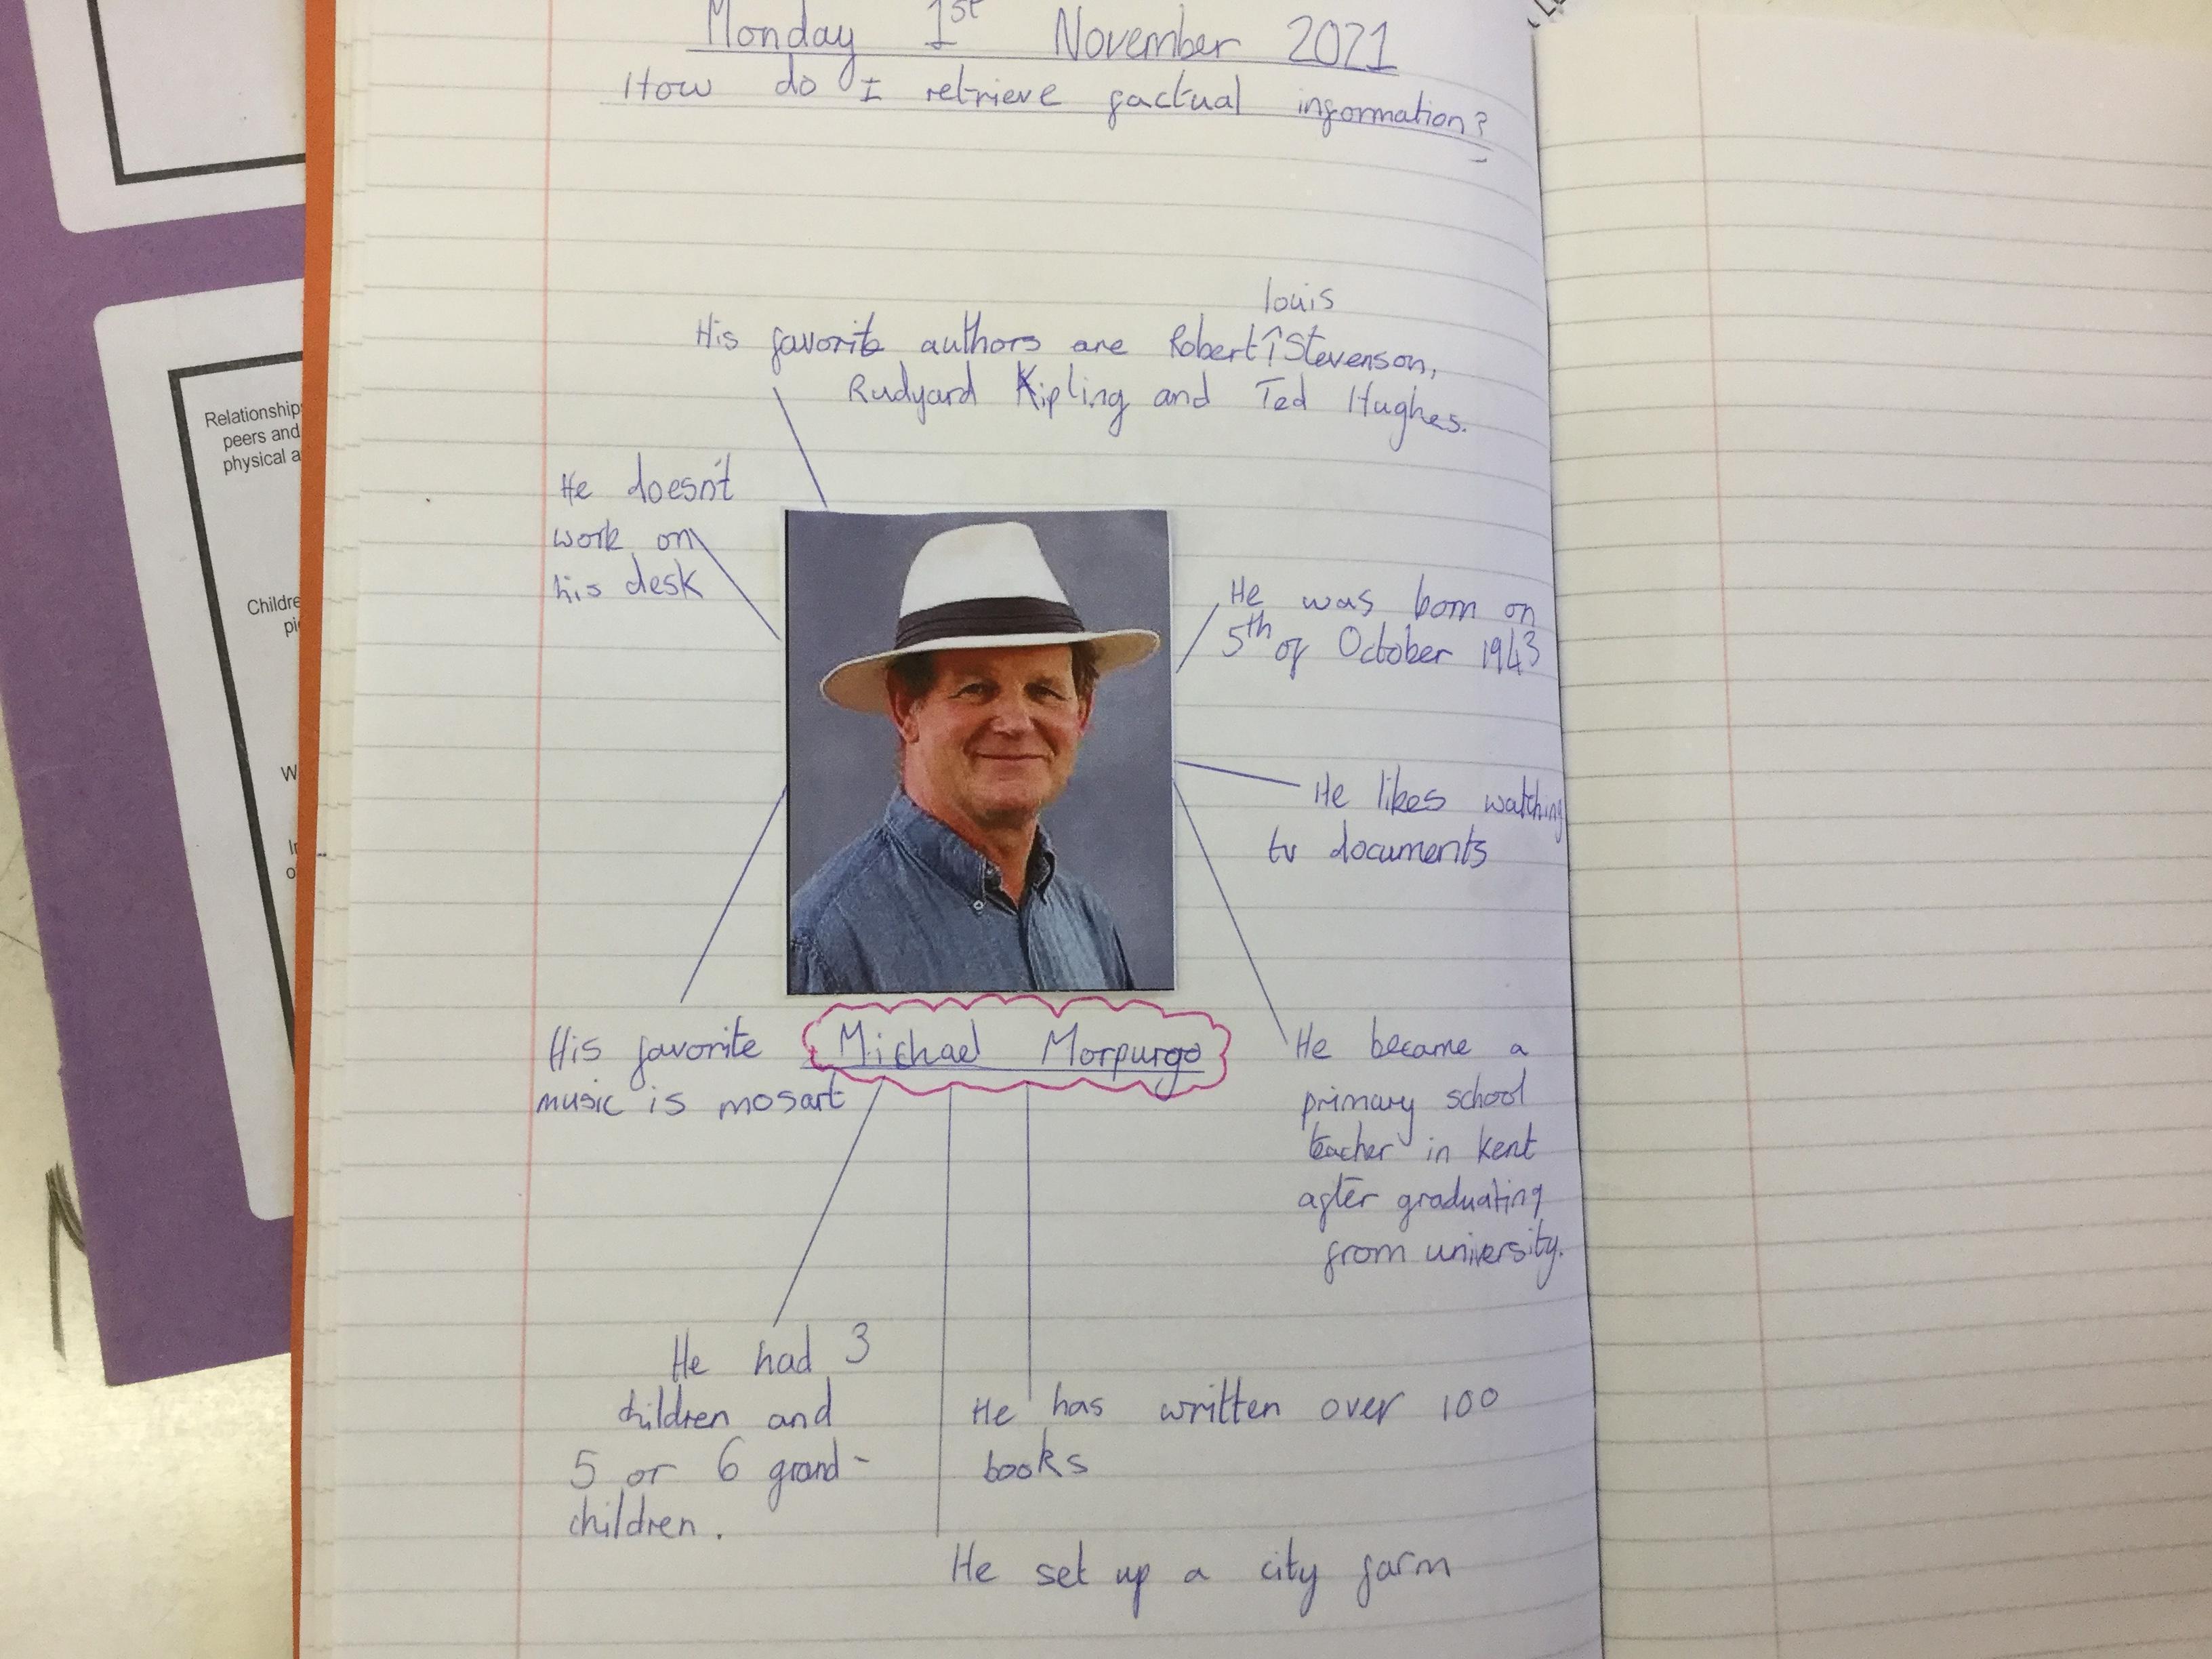 Monday 1st November 2021
How do I retrieve factual information?
louis
His favorite authors are Robert ↑ Stevenson,
Rudyard Kipling and Ted Hughes.
He doesn't
work on
his desk
He was born on
5th of October 1943
He likes watching
tv documents
His favorite
music is mosart
Michael Morpurgo
He became a
primary school
teacher in Kent
after graduating
from university.
He had 3
children and
5 or 6 grand-
children.
He has written over 100
books
He set up a city farm
Relationships
peers and
physical a
Childre
pi
W
I
o